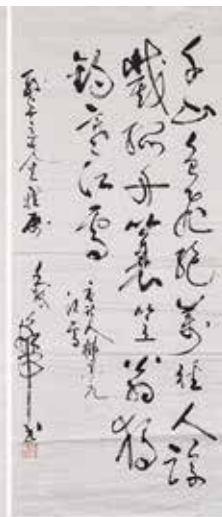 千山鳥飛絕萬徑人踪
滅孤舟蓑笠翁獨
釣寒江雪
唐詩人柳宗元
江雪
先生雅屬